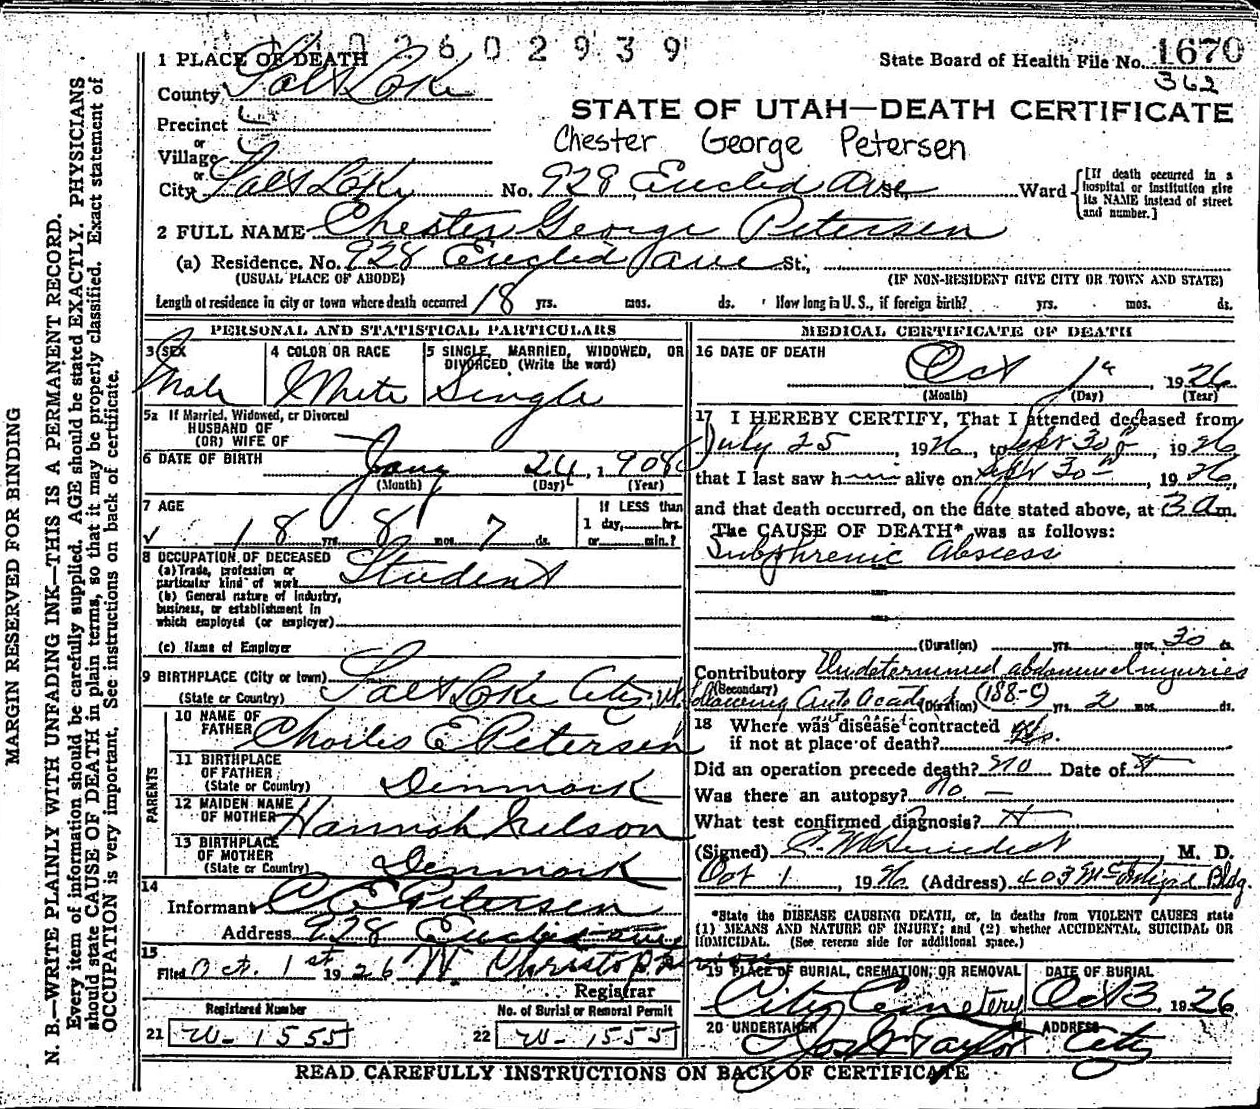 2602939
State Board of Health File No. 1670
362
1 PLACE OF DEATH
County Salt Lake
STATE OF UTAH—DEATH CERTIFICATE
Precinct
or
Village
or
City Salt Lake No. 928 Euclid Ave St., Ward
Chester George Petersen
[If death occurred in a hospital or institution give its NAME instead of street and number.]
2 FULL NAME Chester George Petersen
(a) Residence. No. 928 Euclid ave St.,
(USUAL PLACE OF ABODE) (IF NON-RESIDENT GIVE CITY OR TOWN AND STATE)
Length of residence in city or town where death occurred 18 yrs. mos. ds. How long in U. S., if foreign birth? yrs. mos. ds.
PERSONAL AND STATISTICAL PARTICULARS
3 SEX
Male
4 COLOR OR RACE
White
5 SINGLE, MARRIED, WIDOWED, OR DIVORCED (Write the word)
Single
5a If Married, Widowed, or Divorced
HUSBAND OF
(OR) WIFE OF
6 DATE OF BIRTH Jany 24, 1908
(Month) (Day) (Year)
7 AGE
18 yrs. 8 mos. 7 ds.
If LESS than
1 day, hrs.
or min.?
8 OCCUPATION OF DECEASED
(a) Trade, profession or
particular kind of work Student
(b) General nature of industry,
business, or establishment in
which employed (or employer)
(c) Name of Employer
9 BIRTHPLACE (City or town)
(State or Country) Salt Lake City, Ut.
PARENTS
10 NAME OF
FATHER Charles E Petersen
11 BIRTHPLACE
OF FATHER
(State or Country) Denmark
12 MAIDEN NAME
OF MOTHER Hannah Nelson
13 BIRTHPLACE
OF MOTHER
(State or Country) Denmark
14
Informant C E Petersen
Address 928 Euclid ave
15
Filed Oct. 1st 1926 W. Christopherson
Registrar
Registered Number
21 W-1555
No. of Burial or Removal Permit
22 W-1555
MEDICAL CERTIFICATE OF DEATH
16 DATE OF DEATH
Oct 1st, 1926
(Month) (Day) (Year)
17 I HEREBY CERTIFY, That I attended deceased from
July 25, 1926, to Sept 30th, 1926
that I last saw h alive on Sept 30th, 1926
and that death occurred, on the date stated above, at 3 a m.
The CAUSE OF DEATH* was as follows:
Subphrenic Abscess
(Duration) yrs. mos. 30 ds.
Contributory Undetermined abdominal injuries
(Secondary) following Auto Accident (Duration) (188-c) yrs. 2 mos. ds.
18 Where was disease contracted
if not at place of death?
Did an operation precede death? No Date of
Was there an autopsy? No. —
What test confirmed diagnosis?
(Signed) M. D.
Oct 1, 1926 (Address) 403 McIntyre Bldg.
*State the DISEASE CAUSING DEATH, or, in deaths from VIOLENT CAUSES state
(1) MEANS AND NATURE OF INJURY; and (2) whether ACCIDENTAL, SUICIDAL OR
HOMICIDAL. (See reverse side for additional space.)
19 PLACE OF BURIAL, CREMATION, OR REMOVAL
City Cemetery
DATE OF BURIAL
Oct 3, 1926
20 UNDERTAKER
Jos Wm Taylor
ADDRESS
City
READ CAREFULLY INSTRUCTIONS ON BACK OF CERTIFICATE
MARGIN RESERVED FOR BINDING
N. B.—WRITE PLAINLY WITH UNFADING INK—THIS IS A PERMANENT RECORD.
Every item of information should be carefully supplied. AGE should be stated EXACTLY. PHYSICIANS
should state CAUSE OF DEATH in plain terms, so that it may be properly classified. Exact statement of
OCCUPATION is very important. See instructions on back of certificate.